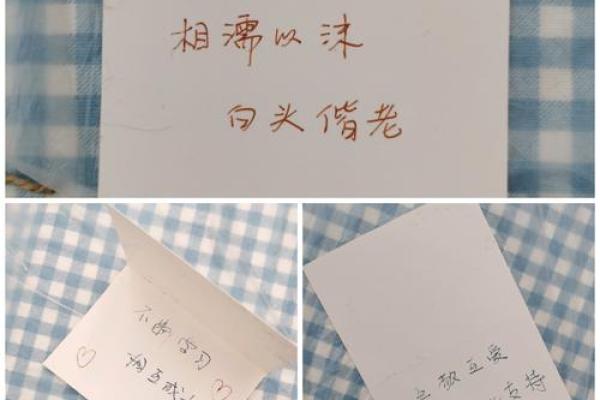 相濡以沫
白头偕老
不断学习
相互成
互敬互爱
支持